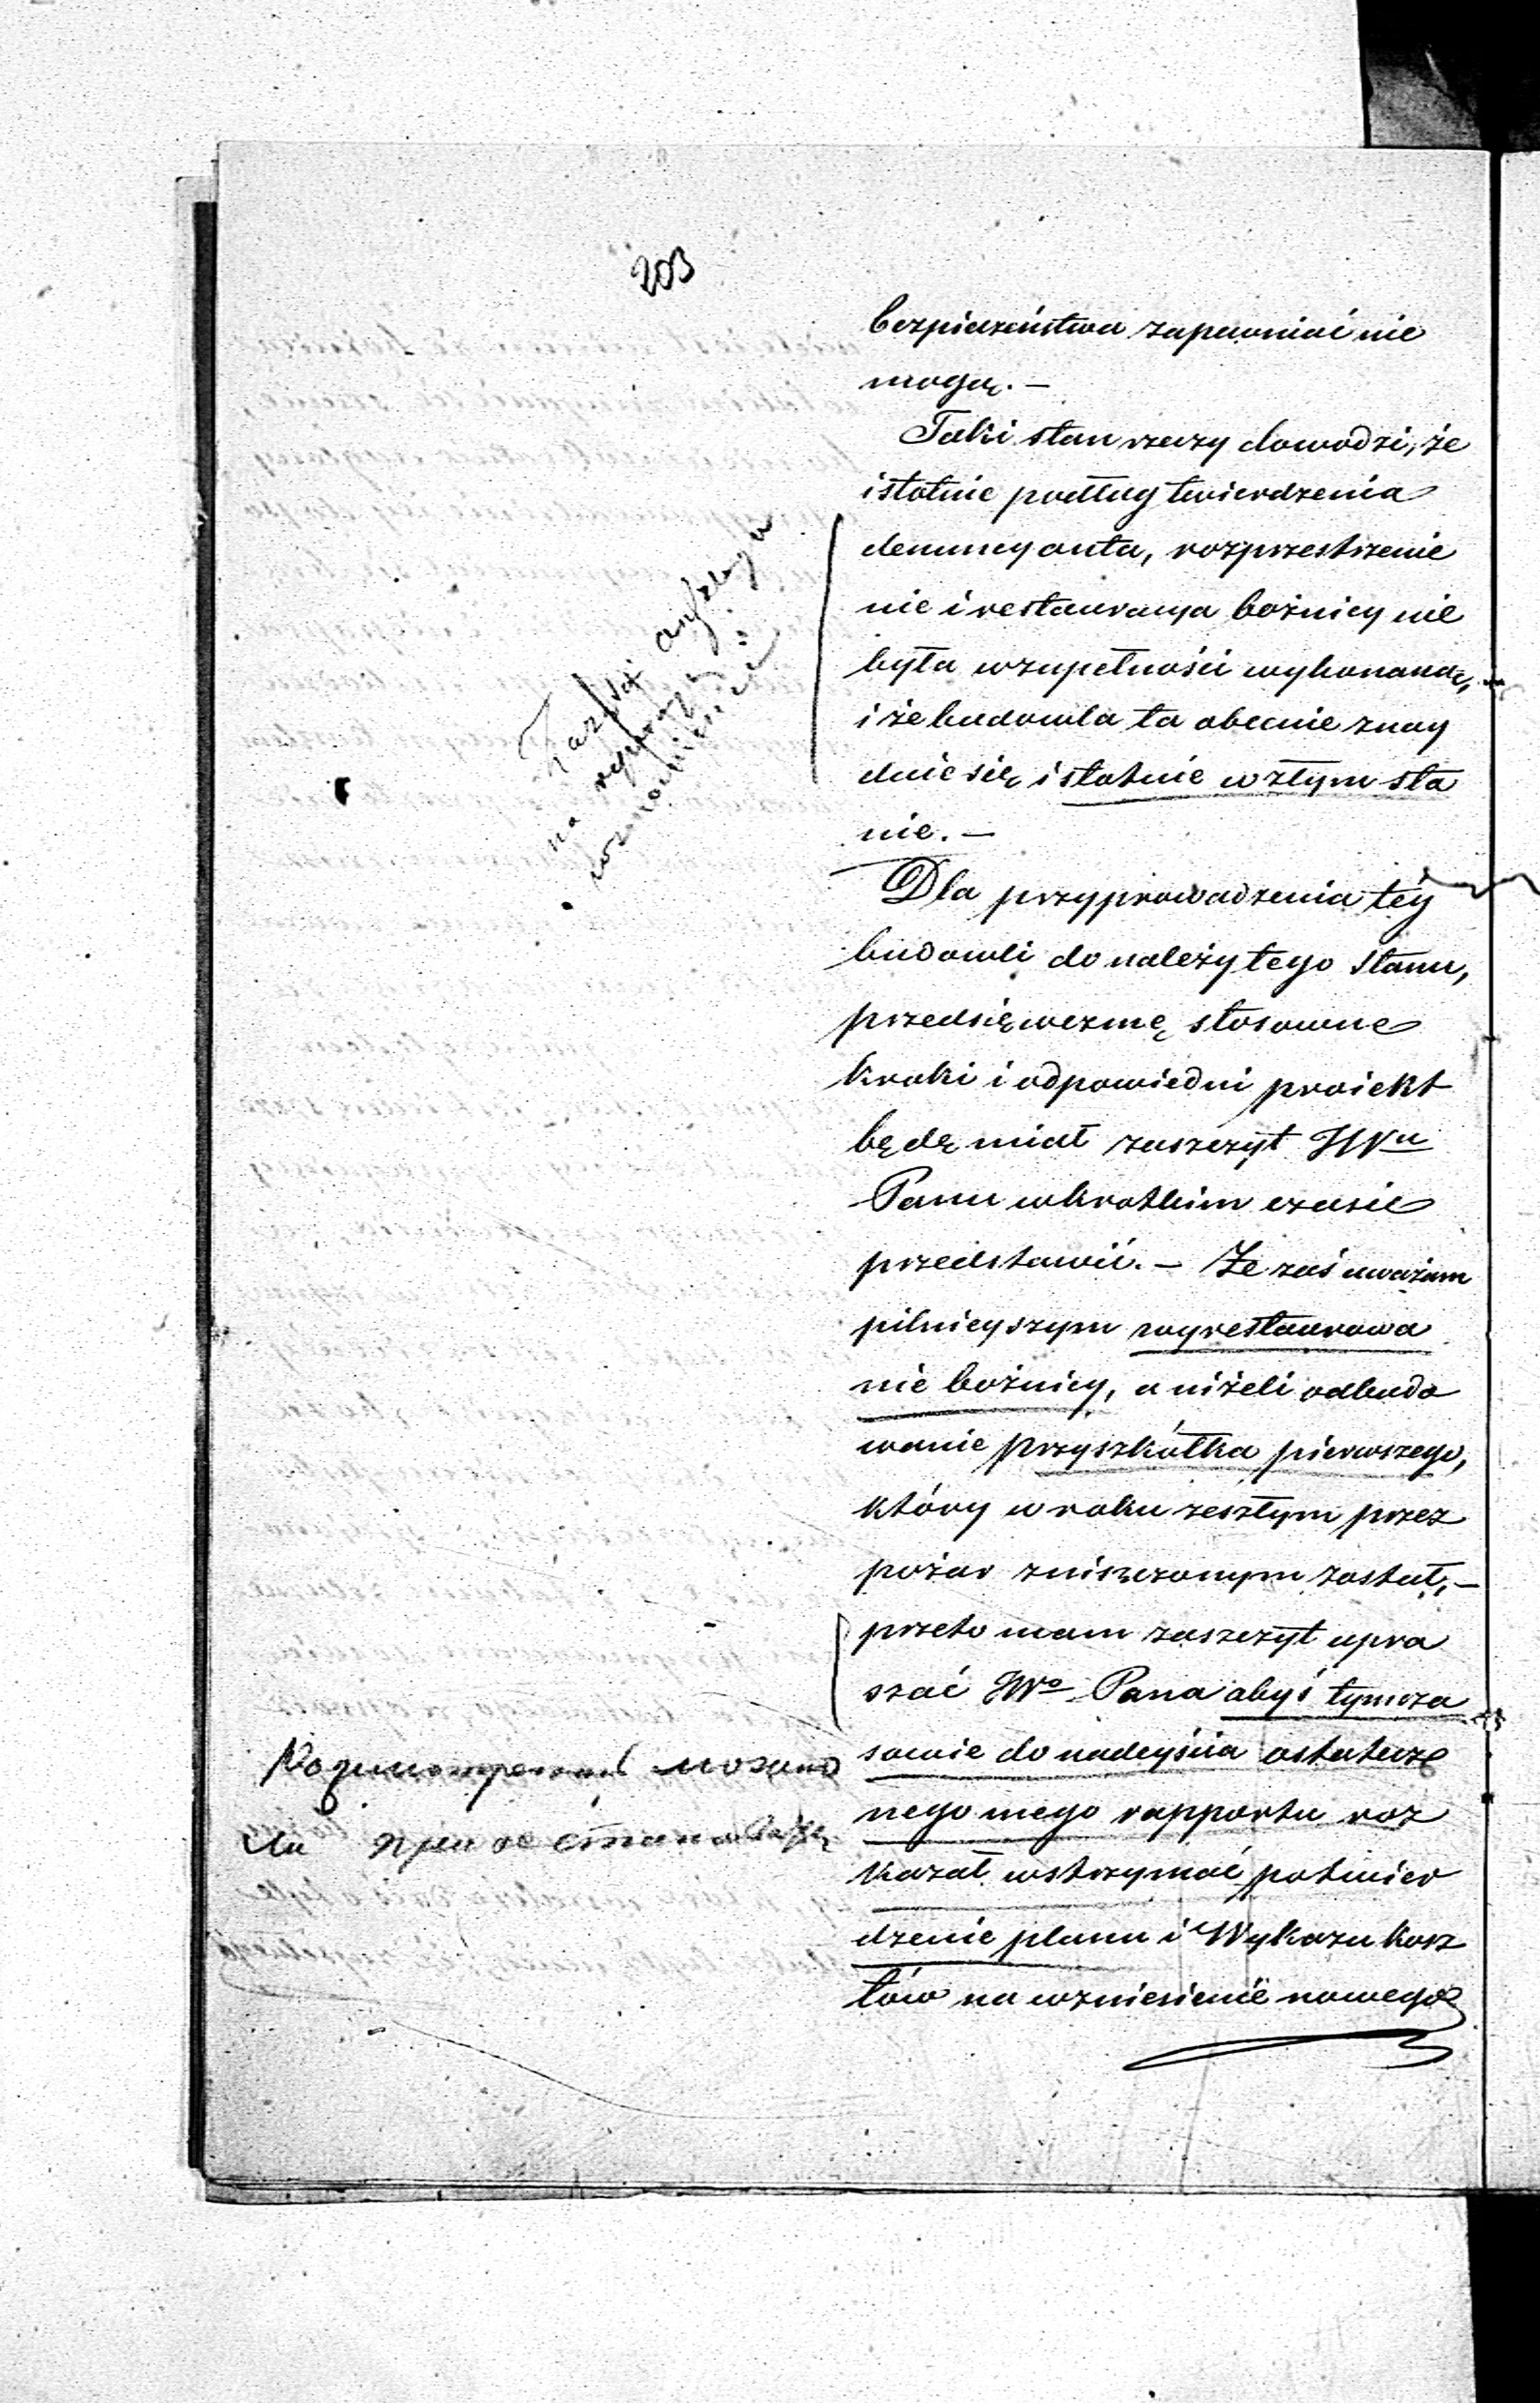 203
bezpieczeństwa zapewniać nie
mogą. —
Taki stan rzeczy dowodzi, że
istotnie podług twierdzenia
denuncyanta, rozprzestrzenie
nie i restauracya bożnicy nie
była wzupełności wykonaną,
i że budowla ta obecnie znay
duie się istotnie w złym sta
nie. —
Dla przyprowadzenia téy
budowli do należytego stanu,
przedsięwezmę stosowne
kroki i odpowiedni proiekt
będę miał zaszczyt JWu
Panu wkrótkim czasie
przedstawić. — Że zaś uważam
pilnieyszym wyrestaurowa
nie bożnicy, aniżeli odbudo
wanie przyszkółka pierwszego,
który w roku zeszłym przez
pożar zniszczonym został, —
przeto mam zaszczyt upra
szać JWo Pana abyś tymcza
sowie do nadeyścia ostatecz
nego mego rapportu roz
kazał wstrzymać potwier
dzenie planu i Wykazu kosz
tów na wzniesienie nowego
anszlagu
na